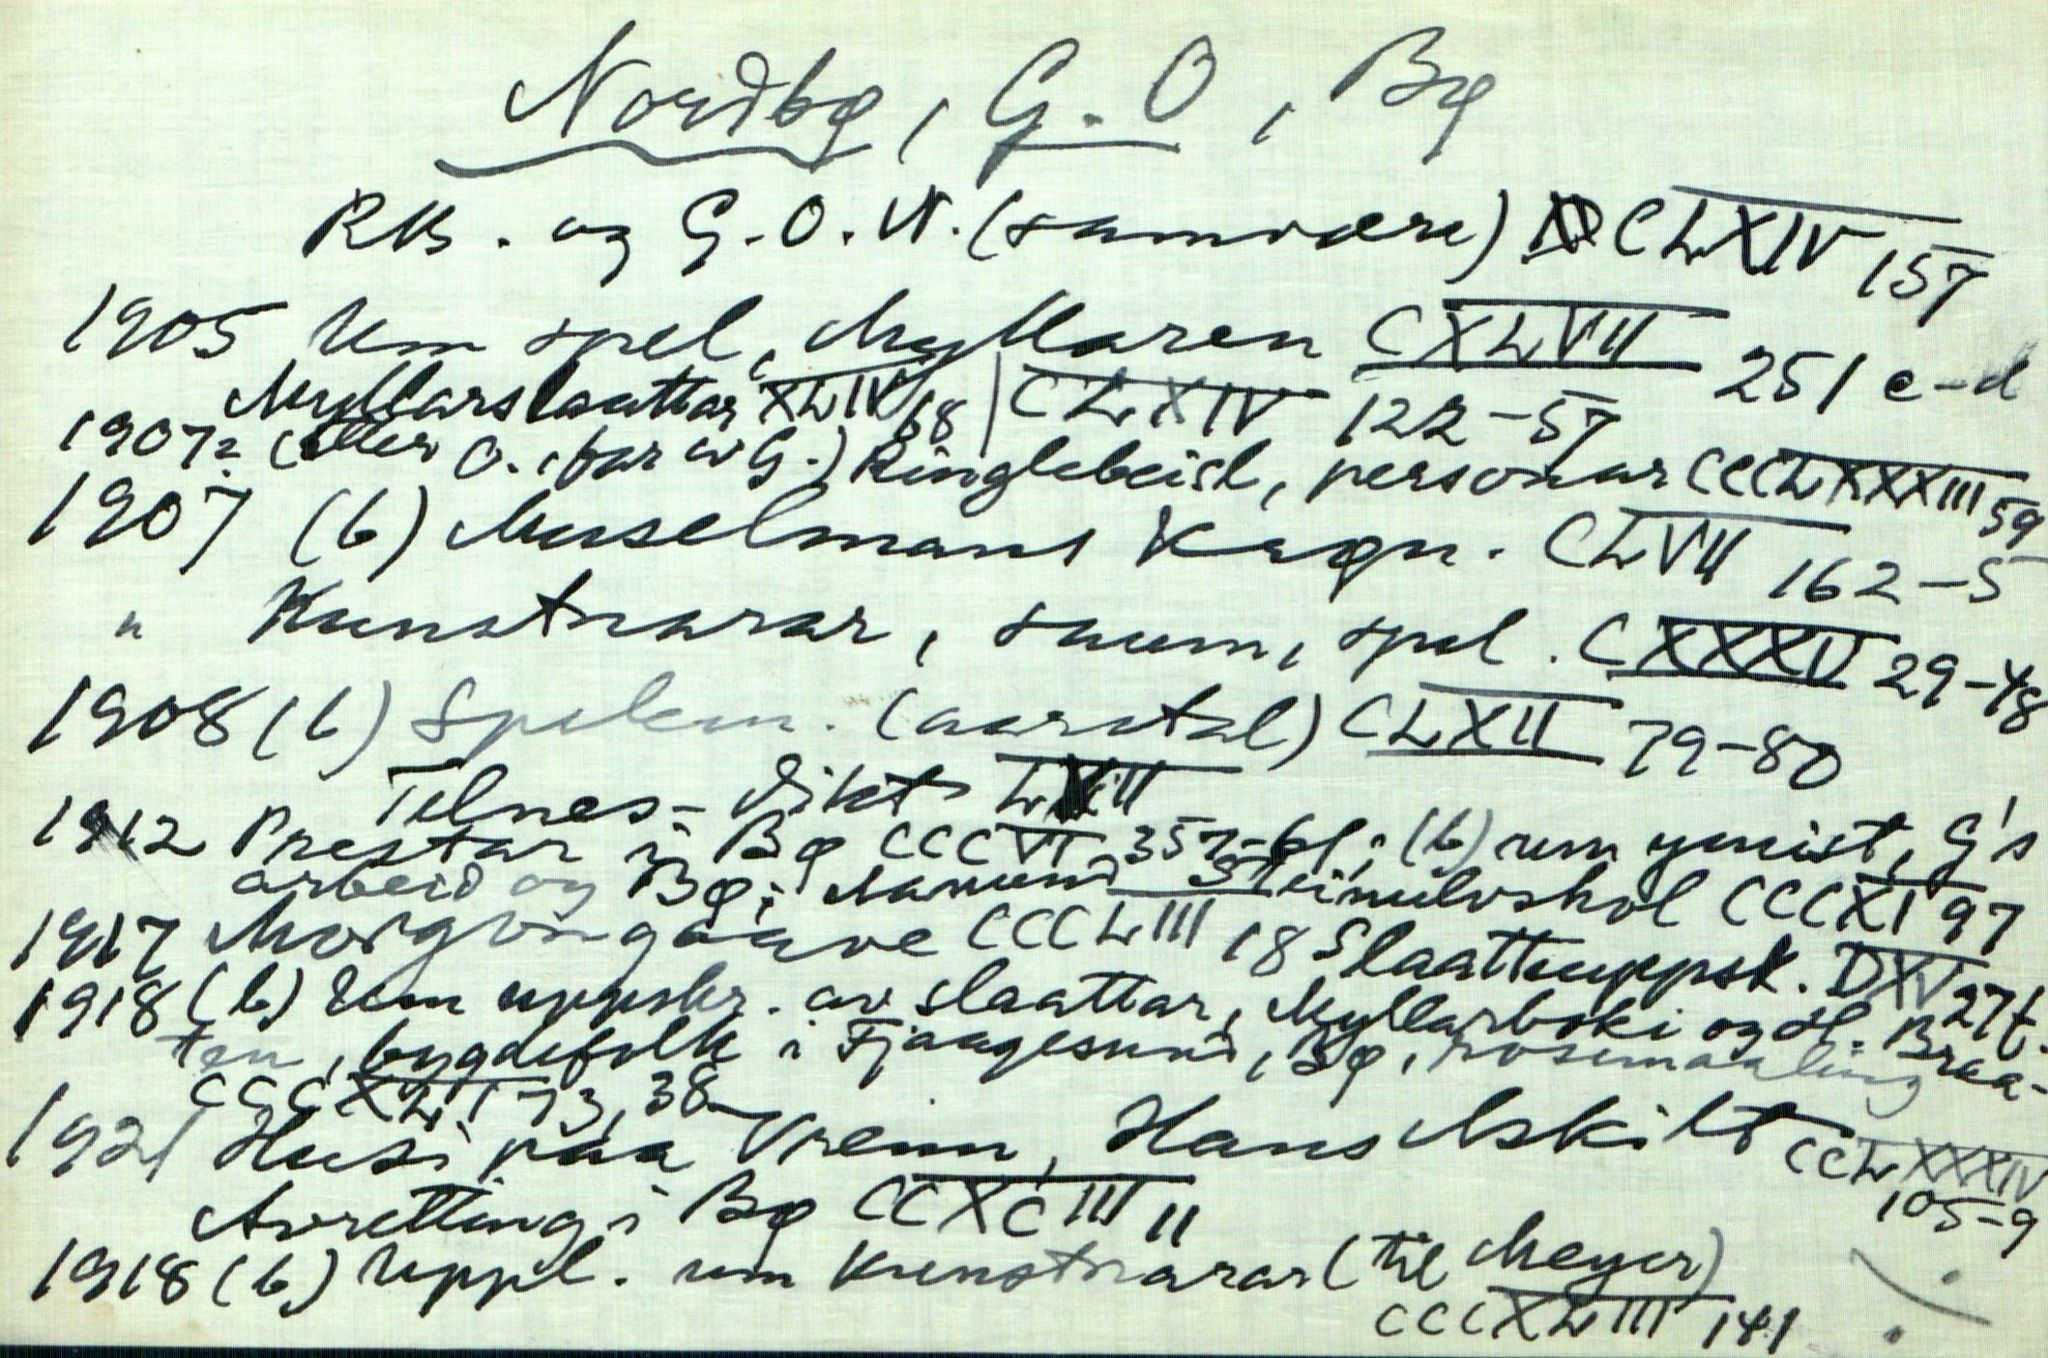 Nordbø, G. O, Bø
RB. og G. O. N. (samvære) CLXIV 157
1905 Um spel, Myllaren CXLVII 251 c-d
Myllarslaattar XLIV 68 | CLXIV 122-57
1907? (eller O., far av G.) Ringlebeisl, personar CCCLXXXIII 59
1907 (b) Muselmans Kagn. CLVII 162-5
" Kunstnarar, saum, spel. CXXXV 29-48
1908 (b) Spelem. (aarstal) CLXII 79-80
Telnes-dikt
1912 Prestar i Bø CCCVI 357-61; (b) um ymist, G's
arbeid og Bø; Steinulvshol CCCXI 97
1917 Morgongaave CCCLIII 18 Slaatteuppsk. DXV 27f.
1918 (b) Um uppskr. av slaattar, Myllarboki og Ol. Braa-
ten, bygdefolk i Fjaagesund, Bø, rosemaaling
CCCXLI 73, 38
1921 Husi paa Vreim, Hans Askilt CCLXXXIV
105-9
Avretting i Bø CCXCIII 11
1918 (b) Uppl. um kunstnarar (til Meyer)
CCCXLIII 141